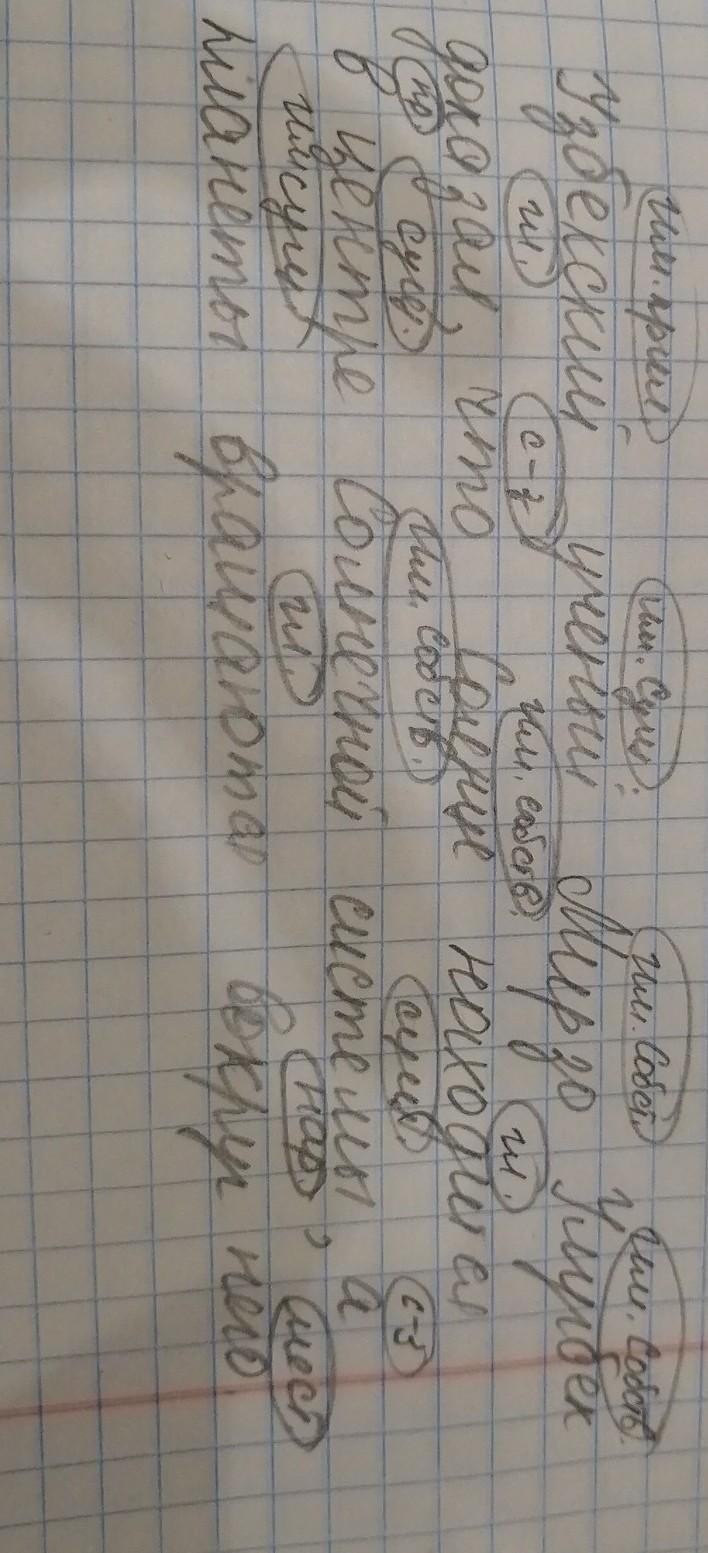 Им.прил. Им. Сущ. Им. Собст. Им. Собств.
Узбекский ученый Мирзо Улугбек
гл. с-з Им. собств. гл.
доказал, что Солнце находится
пр сущ. Им. Собств. сущ. с-з
в центре Солнечной системы, а
Им сущ гл. нар мест
планеты вращаются вокруг него.